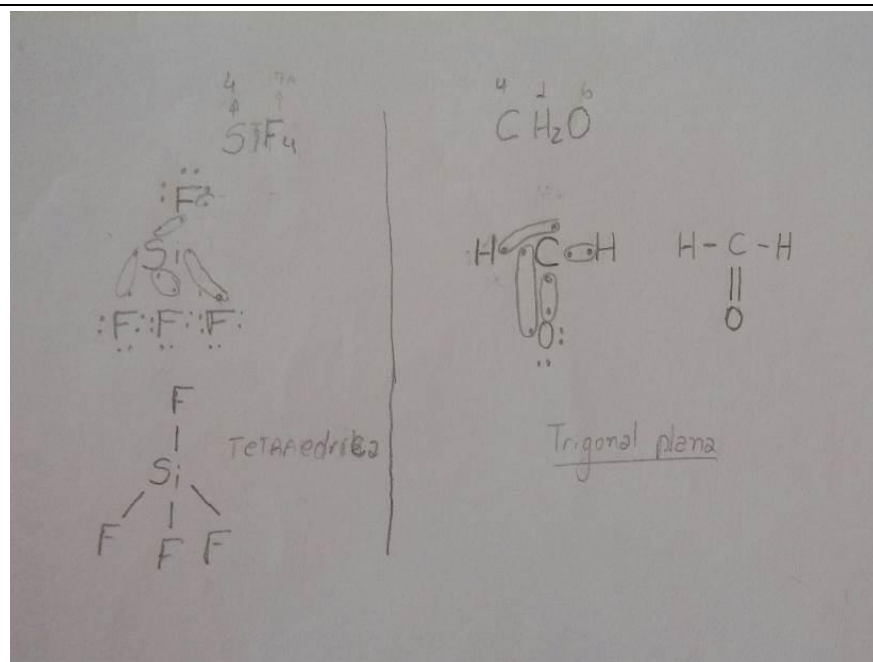 4 7A
SiF4
F
Si
F F F
F
Si
F F F
Tetraedrica
4 1 6
CH2O
H C H
O
H - C - H
||
O
Trigonal plana